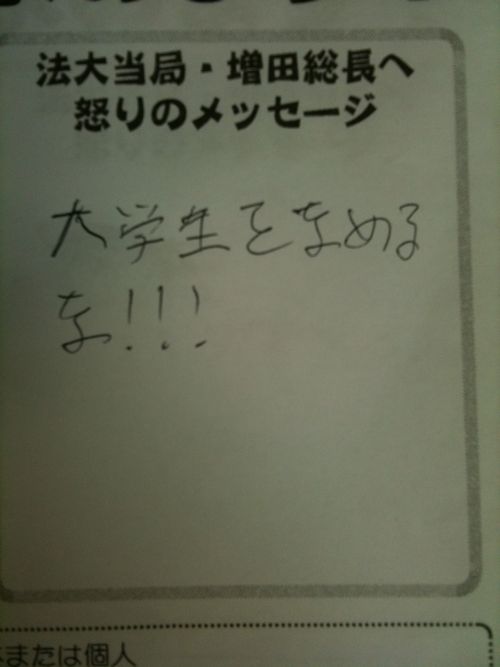 法大当局・増田総長へ
怒りのメッセージ
大学生をなめる
な!!!
または個人